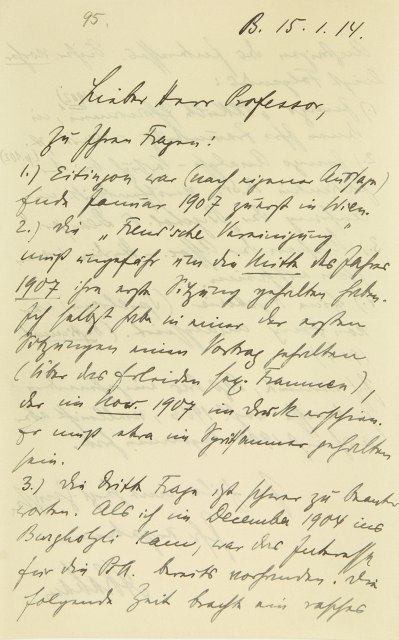 95.
B. 15.1.14.
Lieber Herr Professor,
zu Ihren Fragen:
1.) Eitingon war (nach eigener Aussage)
Ende Januar 1907 zuerst in Wien.
2.) die „Freud'sche Vereinigung"
muß ungefähr um die Mitte des Jahres
1907 ihre erste Sitzung gehalten haben.
Ich selbst habe in einer der ersten
Sitzungen einen Vortrag gehalten
(Über das Erleiden sex. Traumen),
der im Nov. 1907 im Druck erschien.
Er muß etwa im Spätsommer gehalten
sein.
3.) Die dritte Frage ist schwer zu beant-
worten. Als ich im December 1904 ins
Burghölzli kam, war das Interesse
für die ΨA. bereits vorhanden. Die
folgende Zeit brachte ein rasches